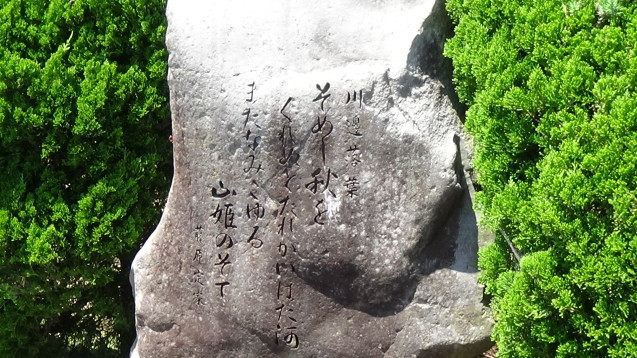 川邊落葉
そめし秋を
くれぬとたれかいはた河
またなみこゆる
山姫のそて
藤原定家